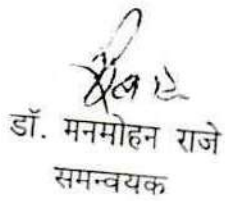 डॉ. मनमोहन राजे
समन्वयक